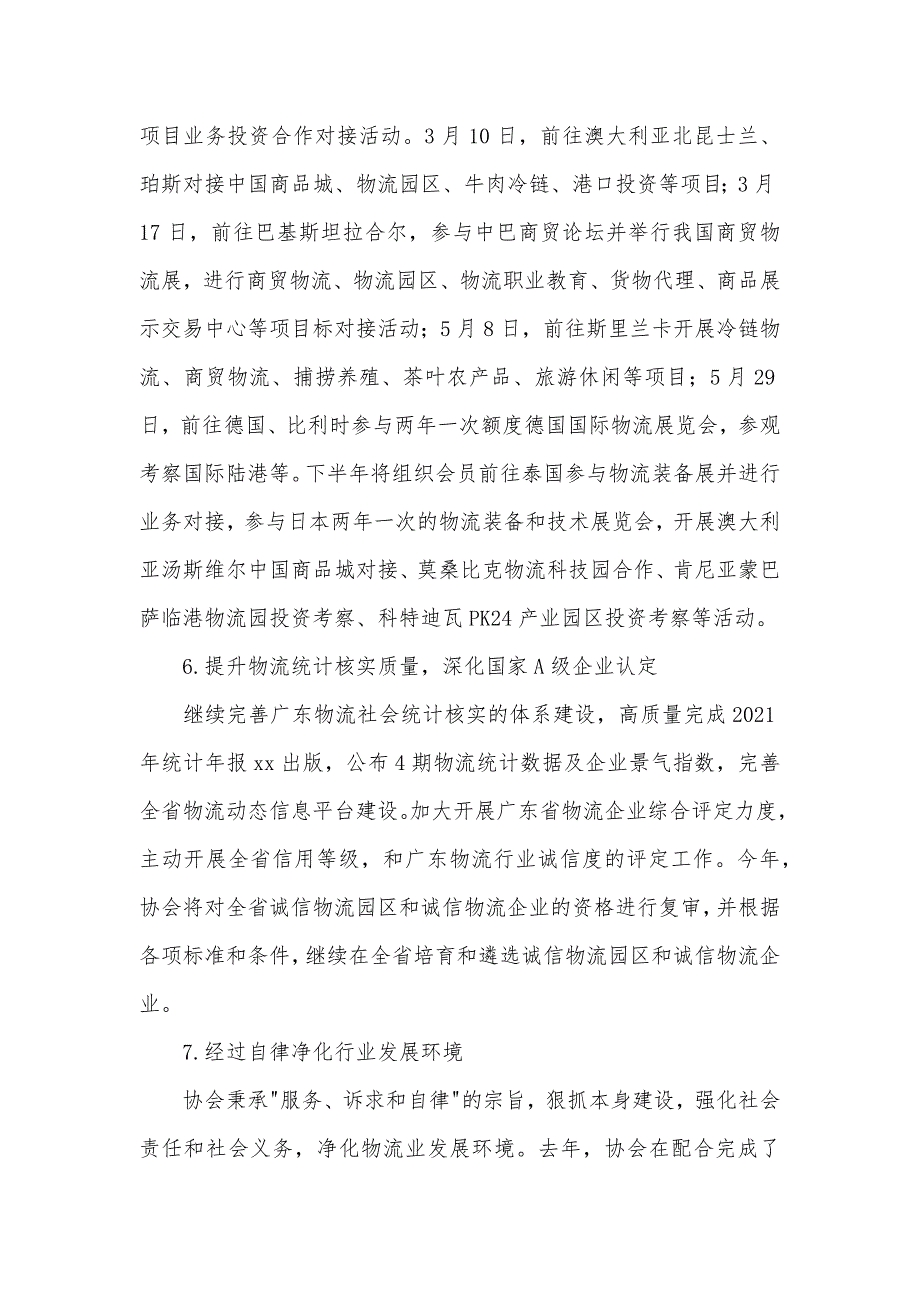 项目业务投资合作对接活动。3 月 10 日，前往澳大利亚北昆士兰、
珀斯对接中国商品城、物流园区、牛肉冷链、港口投资等项目；3 月
17 日，前往巴基斯坦拉合尔，参与中巴商贸论坛并举行我国商贸物
流展，进行商贸物流、物流园区、物流职业教育、货物代理、商品展
示交易中心等项目标对接活动；5 月 8 日，前往斯里兰卡开展冷链物
流、商贸物流、捕捞养殖、茶叶农产品、旅游休闲等项目；5 月 29
日，前往德国、比利时参与两年一次额度德国国际物流展览会，参观
考察国际陆港等。下半年将组织会员前往泰国参与物流装备展并进行
业务对接，参与日本两年一次的物流装备和技术展览会，开展澳大利
亚汤斯维尔中国商品城对接、莫桑比克物流科技园合作、肯尼亚蒙巴
萨临港物流园投资考察、科特迪瓦 PK24 产业园区投资考察等活动。
6.提升物流统计核实质量，深化国家 A 级企业认定
继续完善广东物流社会统计核实的体系建设，高质量完成 2021
年统计年报 xx 出版，公布 4 期物流统计数据及企业景气指数，完善
全省物流动态信息平台建设。加大开展广东省物流企业综合评定力度，
主动开展全省信用等级，和广东物流行业诚信度的评定工作。今年，
协会将对全省诚信物流园区和诚信物流企业的资格进行复审，并根据
各项标准和条件，继续在全省培育和遴选诚信物流园区和诚信物流企
业。
7.经过自律净化行业发展环境
协会秉承"服务、诉求和自律"的宗旨，狠抓本身建设，强化社会
责任和社会义务，净化物流业发展环境。去年，协会在配合完成了